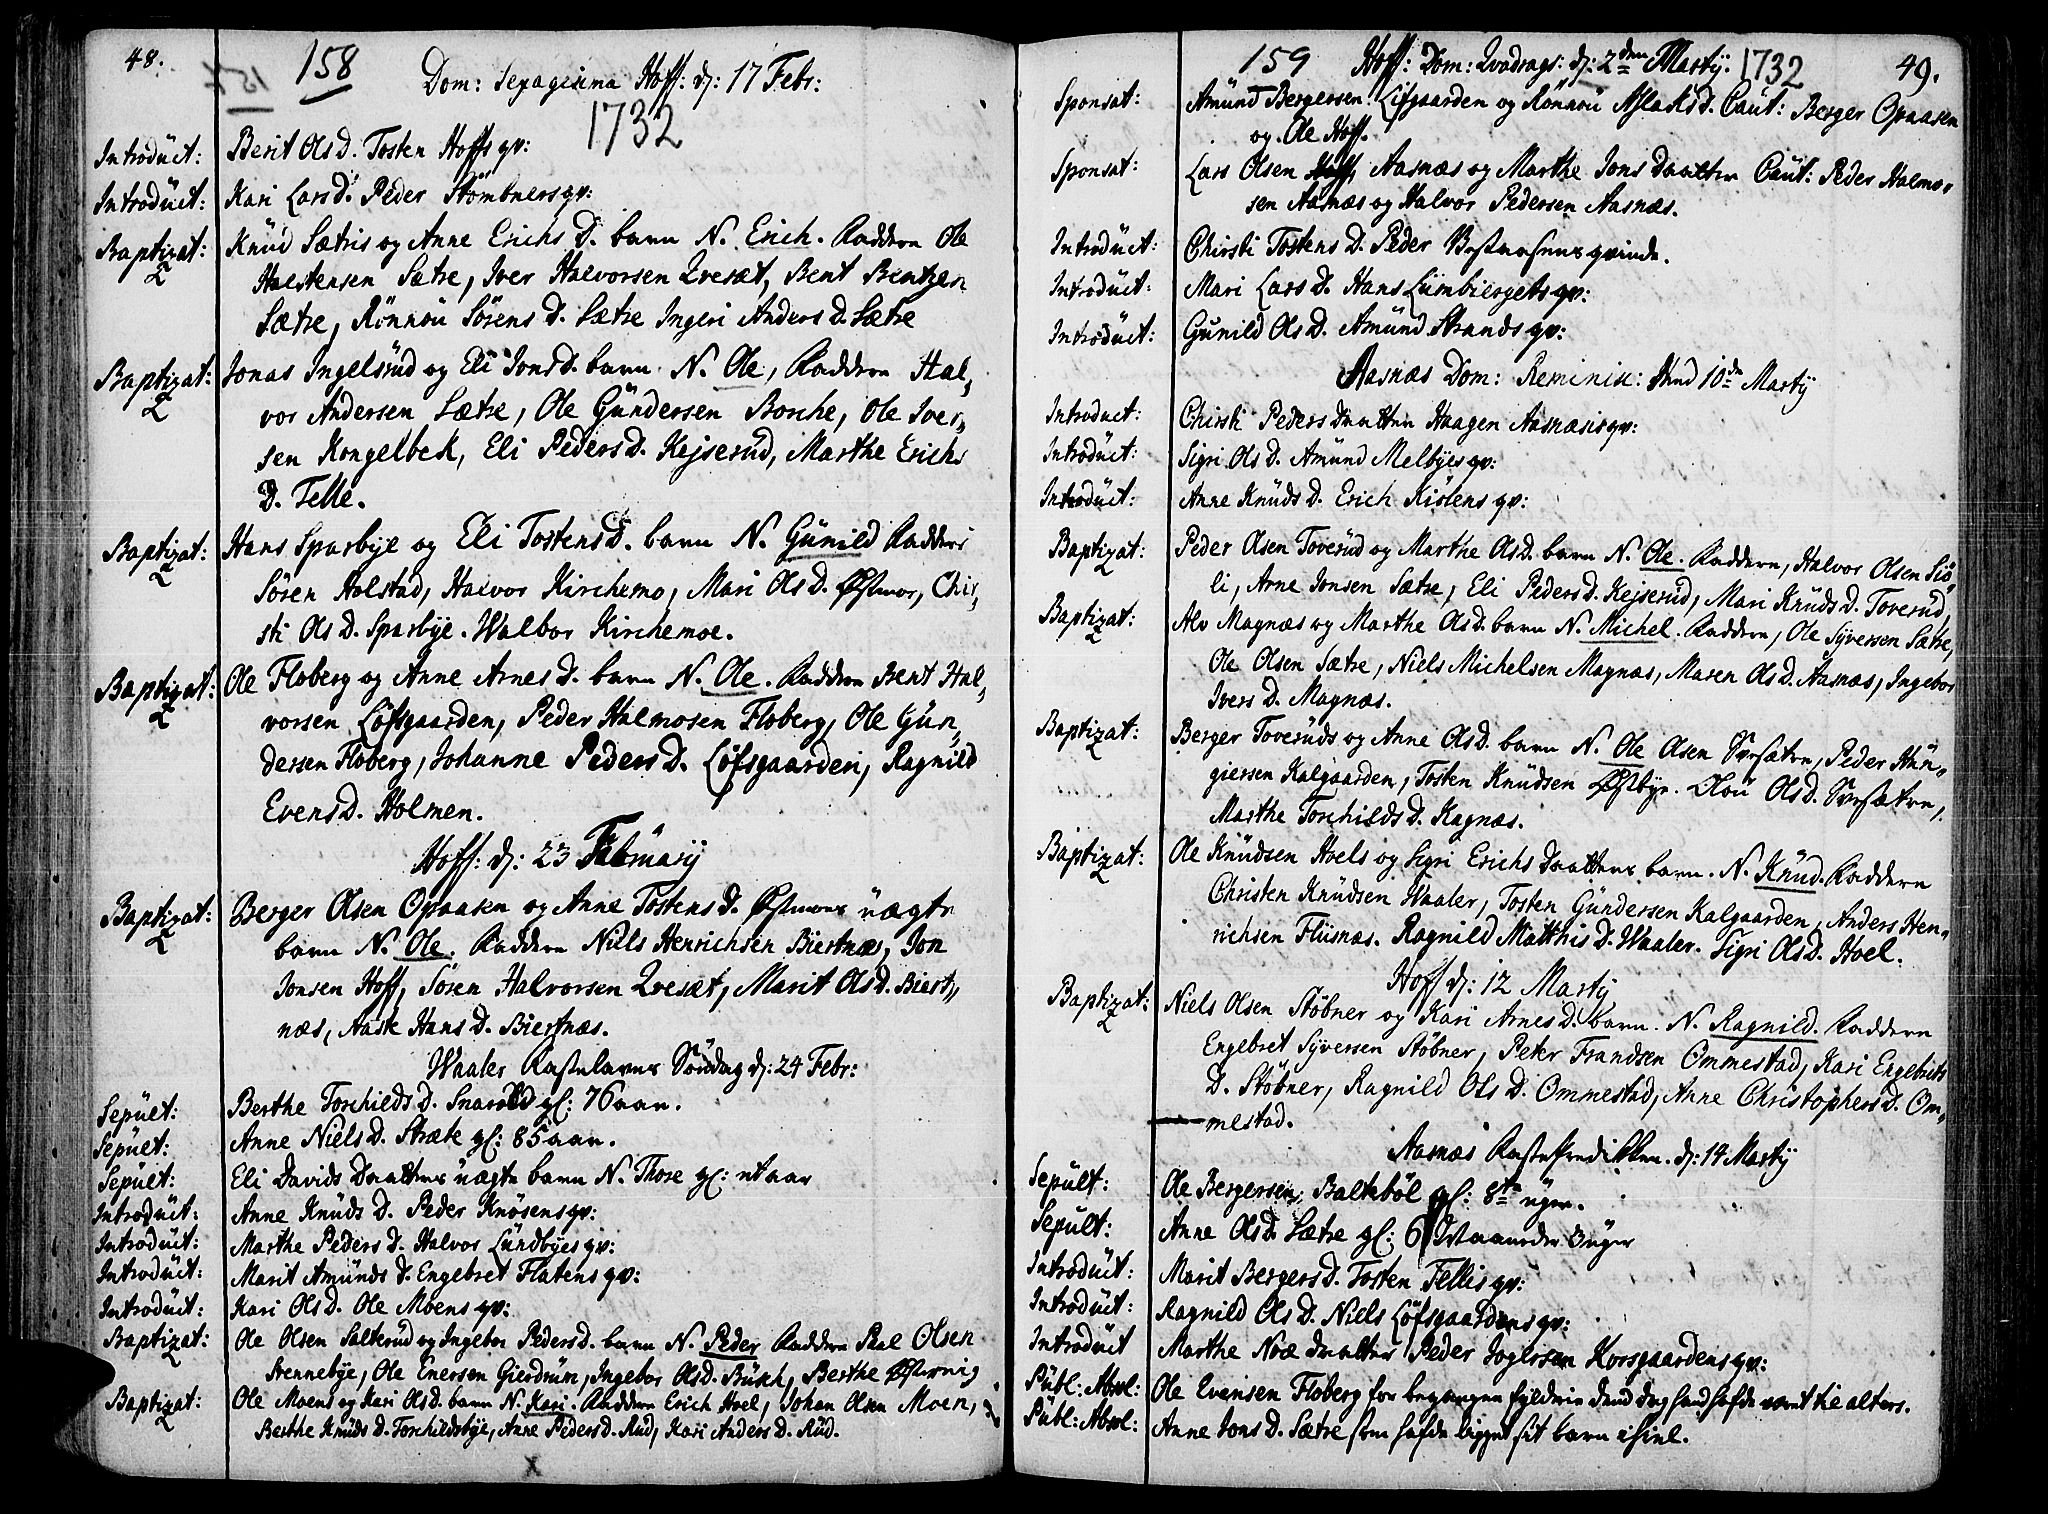 48.
158
Dom: Sexagesima Hoff: d: 17 Febr:
1732
Introduct: Berit Ols D. Tosten Hoffs qv:
Introduct: Kari Lars D. Peder Stömbners qv:
Baptizat: Knud Sætris og Anne Erichs D. barn N. Erich. Faddere Ole
2 Halstensen Sætre, Iver Halvorsen Qvesæt, Bent Bentzen
Sætre, Rönnou Sörens D. Sætre Ingeri Anders D. Sætre
Baptizat: Jonas Ingelsrud og Eli Jons D. barn N. Ole, Faddere Hal,
2 vor Andersen Sætre, Ole Gündersen Borche, Ole Iver,
sen Kongelbek, Eli Peders D. Kejserud, Marthe Erichs
D. Telle.
Baptizat: Hans Sparbye og Eli Tostens D. barn N. Günild Faddere
2 Sören Holstad, Halvor Kirchemo, Mari Ols D. Østmor, Chir,
sti Ols D. Sparbye. Walbor Kirchemoe.
Baptizat: Ole Floberg og Anne Arnes D. barn N. Ole. Faddere Bent Hal,
2 vorsen Löfsgaarden, Peder Halmosen Floberg, Ole Gün,
dersen Floberg, Johanne Peders D. Löfsgaarden, Ragnild
Evens D. Holmen.
Hoff: d: 23 Februarij
Baptizat: Berger Olsen Opaasen og Anne Tostens D. Østmors uægte
2 barn N. Ole. Faddere Niels Henrichsen Biertnæs, Jon
Jonsen Hoff, Sören Halvorsen Qvesæt, Marit Ols D. Biert,
næs, Aase Hans D. Biertnæs.
Waaler Fastelavns Söndag d: 24 Febr:
Sepult: Berthe Torchilds D. Snarold gl: 76 aar.
Sepult: Anne Niels D. Stræte gl: 85 aar.
Sepult: Eli Davids Daatters uægte barn N. Thore gl: et aar
Introduct: Anne Knuds D. Peder Knösens qv:
Introduct: Marthe Peders D. Halvor Lundbyes qv:
Introduct: Marit Amunds D. Engebret Flatens qv:
Introduct: Kari Ols D. Ole Moens qv:
Baptizat: Ole Olsen Salterud og Ingebor Peders D. barn N. Peder Faddere Pal Olsen
2 Stennebye, Ole Enersen Gierdrum, Ingebor Ols D. Büsch, Berthe Østernig
Baptizat: Ole Moens og Kari Ols D. barn N. Kari. Faddere Erich Hoel, Johan Olsen Moen,
2 Berthe Knuds D. Torchildsbye, Anne Peders D. Rud, Kari Anders D. Rud.
X
159 Hoff: Dom: Qvadrags: d: 2den Martij. 1732 49.
Sponsat: Amund Bergersen Löfgaarden og Rönnou Aslaks D. Caut: Berger Opaasen
og Ole Hoff.
Sponsat: Lars Olsen Aasnæs og Marthe Jons Daatter Caut: Peder Halmo,
sen Aasnæs og Halvor Pedersen Aasnæs.
Introduct: Chirsti Tostens D. Peder Bastaasens qvinde.
Introduct: Mari Lars D. Hans Lümbiergets qv:
Introduct: Gunild Ols D. Amund Strands qv:
Aasnæs Dom: Reminisc: d: 10de Martij
Introduct: Chirsti Peders Daatter Haagen Aasnæsis qv:
Introduct: Sigri Ols D. Amund Melbyes qv:
Introduct: Anne Knuds D. Erich Kiölens qv:
Baptizat: Peder Olsen Toverud og Marthe Ols D. barn N. Ole. Faddere, Halvor Olsen Siö,
2 li, Arne Jonsen Sætre, Eli Peders D. Kejserud, Mari Knuds D. Toverud,
Baptizat: Alv Magnæs og Marthe Ols D. barn N. Michel. Faddere, Ole Syversen Sætre,
2 Ole Olsen Sætre, Niels Michelsen Magnæs, Maren Ols D. Aasnæs, Ingebor
Ivers D. Magnæs.
Baptizat: Berger Toveruds og Anne Ols D. barn N. Ole Olsen Syrsætre, Peder Hün,
2 giersen Kalgaarden, Tosten Knudsen Østbye. Olou Ols D. Syrsætre,
Marthe Torchilds D. Kagnæs.
Baptizat: Ole Knudsen Hoels og Sigri Erichs Daatters barn. N. Knud. Faddere
2 Christen Knudsen Waaler, Tosten Gündersen Kalgaarden, Anders Hen,
richsen Flisnæs. Ragnild Matthis D. Waaler. Sigri Ols D. Hoel.
Hoff d: 12 Martij
Baptizat: Niels Olsen Stöbner og Kari Arnes D. barn. N. Ragnild. Faddere
2 Engebret Syversen Stöbner, Peter Frandsen Ommestad, Kari Engebrits
D. Stöbner, Ragnild Ols D. Ommestad, Anne Christophers D. Om,
mestad.
Aasnæs Fasteprædikken. d: 14 Martij
Sepult: Ole Bergersen Balteböl gl: 8te uger.
Sepult: Anne Ols D. Sætre gl: 6 3 uger
Introduct: Marit Bergers D. Tosten Tellis qv:
Introduct: Ragnild Ols D. Niels Löfsgaardens qv:
Introduct Marthe Noæ daatter Peder Jogersen Korsgaardens qv:
Publ: Absol: Ole Evensen Floberg for begangen fylderie dend dag hand hafde været til alters.
Publ: Absol: Anne Jons D. Sætre som hafde ligget sit barn ihiel.